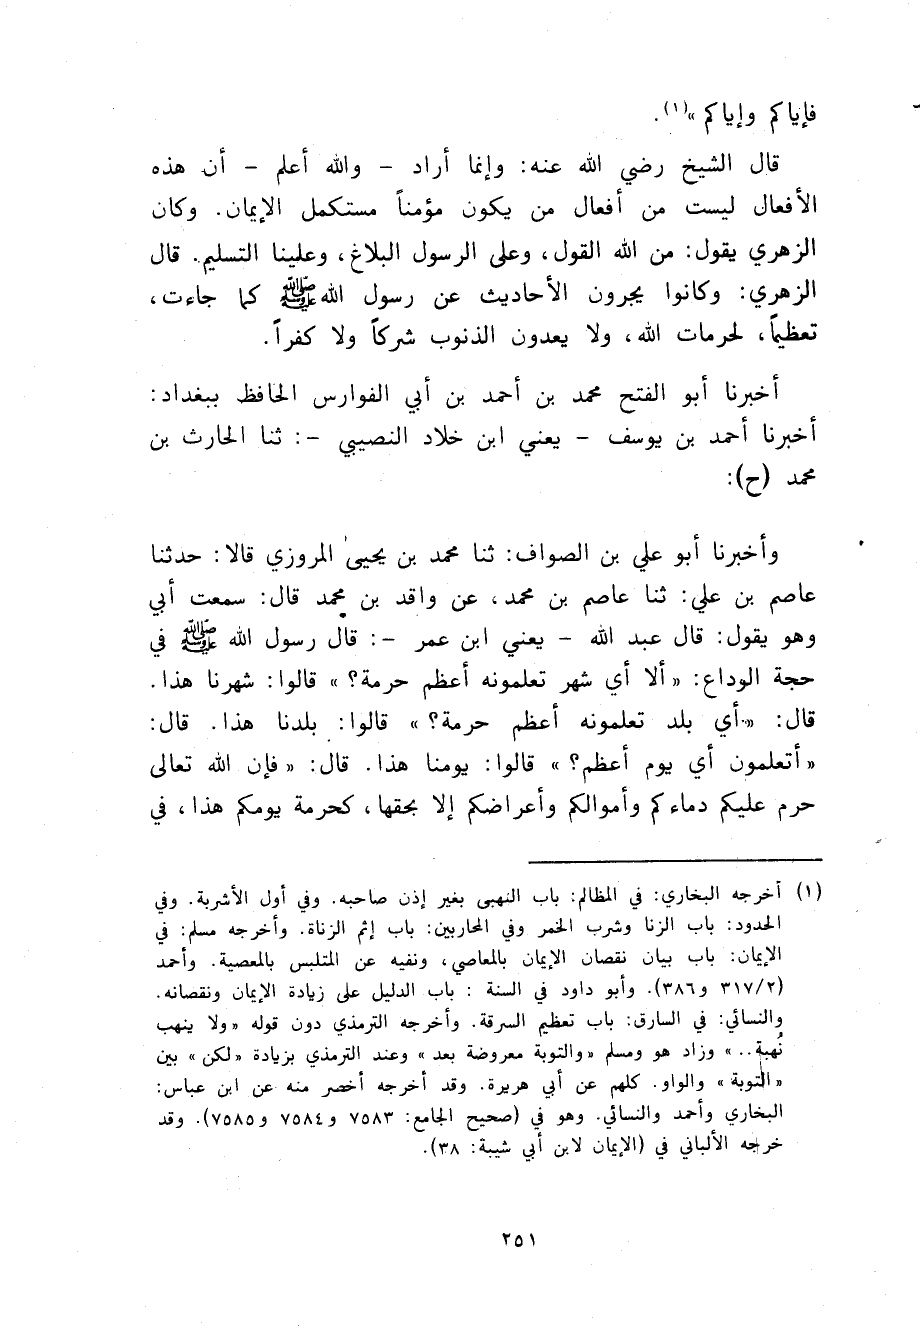 فإياكم وإياكم »(١).
قال الشيخ رضي الله عنه: وإنما أراد – والله أعلم – أن هذه
الأفعال ليست من أفعال من يكون مؤمناً مستكمل الإيمان. وكان
الزهري يقول: من الله القول، وعلى الرسول البلاغ، وعلينا التسليم. قال
الزهري: وكانوا يجرون الأحاديث عن رسول الله ﷺ كما جاءت،
تعظيماً، لحرمات الله، ولا يعدون الذنوب شركاً ولا كفراً.
أخبرنا أبو الفتح محمد بن أحمد بن أبي الفوارس الحافظ ببغداد:
أخبرنا أحمد بن يوسف – يعني ابن خلاد النصيبي –: ثنا الحارث بن
محمد (ح):
وأخبرنا أبو علي بن الصواف: ثنا محمد بن يحيى المروزي قالا: حدثنا
عاصم بن علي: ثنا عاصم بن محمد، عن واقد بن محمد قال: سمعت أبي
وهو يقول: قال عبد الله – يعني ابن عمر –: قال رسول الله ﷺ في
حجة الوداع: « ألا أي شهر تعلمونه أعظم حرمة؟ » قالوا: شهرنا هذا.
قال: « أي بلد تعلمونه أعظم حرمة؟ » قالوا: بلدنا هذا. قال:
« أتعلمون أي يوم أعظم؟ » قالوا: يومنا هذا. قال: « فإن الله تعالى
حرم عليكم دماءكم وأموالكم وأعراضكم إلا بحقها، كحرمة يومكم هذا، في
(١) أخرجه البخاري: في المظالم: باب النهبى بغير إذن صاحبه. وفي أول الأشربة. وفي
الحدود: باب الزنا وشرب الخمر وفي المحاربين: باب إثم الزناة. وأخرجه مسلم: في
الإيمان: باب بيان نقصان الإيمان بالمعاصي، ونفيه عن المتلبس بالمعصية. وأحمد
(٣١٧/٢ و٣٨٦). وأبو داود في السنة : باب الدليل على زيادة الإيمان ونقصانه.
والنسائي: في السارق: باب تعظيم السرقة. وأخرجه الترمذي دون قوله « ولا ينهب
نُهبة.. » وزاد هو ومسلم « والتوبة معروضة بعد » وعند الترمذي بزيادة « لكن » بين
« التوبة » والواو. كلهم عن أبي هريرة. وقد أخرجه أخصر منه عن ابن عباس:
البخاري وأحمد والنسائي. وهو في (صحيح الجامع: ٧٥٨٣ و٧٥٨٤ و٧٥٨٥). وقد
خرجه الألباني في (الإيمان لابن أبي شيبة: ٣٨).
٢٥١